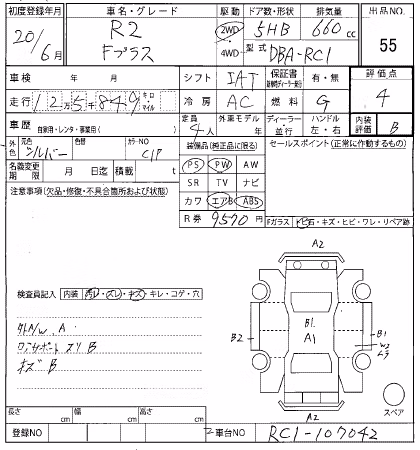 初度登録年月 車名・グレード 駆動 ドア数・形状 排気量 出品NO.
20年 6月 R2 Fプラス 2WD 4WD 5HB 660cc 55
型式 DBA-RC1
車検 年 月 シフト IAT 保証書 有・無 評価点
走行 12万5千849 キロ マイル 冷房 AC 燃料 G 4
車歴 自家用・レンタ・事業用( ) 定員 4人 外車モデル 年 ディーラー・並行 ハンドル 左・右 内装評価 B
外色 元色 シルバー 色替 カラーNO C1P 装備品(純正品に限る) セールスポイント(正常に作動するもの)
名義変更期限 月 日迄 積載 t PS PW AW
注意事項(欠品・修復・不具合箇所および状態) SR TV ナビ
カワ エアB ABS
R券 9570円 Fガラス トビ石・キズ・ヒビ・ワレ・リペア跡
A2
検査員記入 内装 汚レ・スレ・キズ・キレ・コゲ・穴
外A/W A
B スリ B
キズ B
B2 B1 A1 B1 W2
A2
スペア
長さ cm 幅 cm 高さ cm
登録NO 車台NO RC1-107042